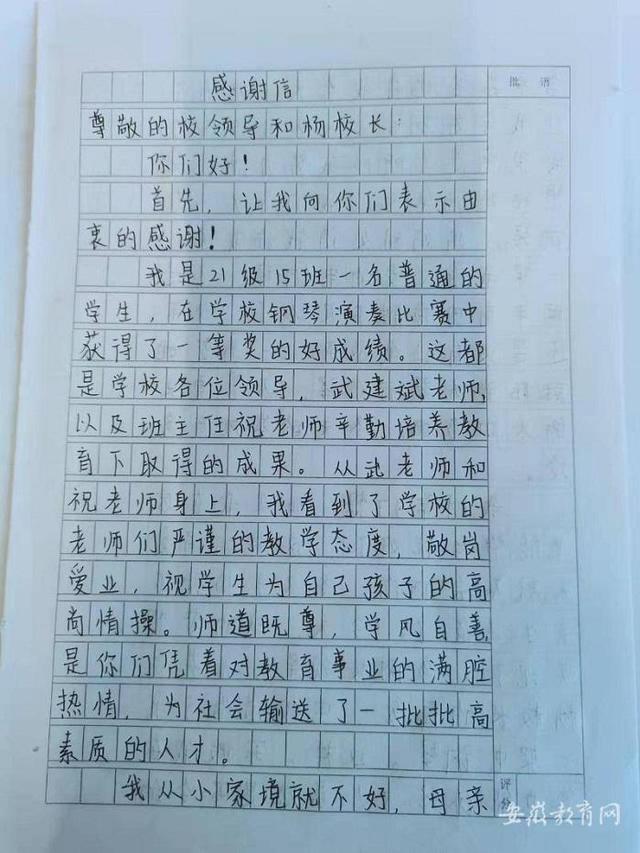 感谢信
批语
尊敬的校领导和杨校长：
你们好！
首先，让我向你们表示由
衷的感谢！
我是21级15班一名普通的
学生，在学校钢琴演奏比赛中
获得了一等奖的好成绩。这都
是学校各位领导，武建斌老师，
以及班主任祝老师辛勤培养教
育下取得的成果。从武老师和
祝老师身上，我看到了学校的
老师们严谨的教学态度，敬岗
爱业，视学生为自己孩子的高
尚情操。师道既尊，学风自善，
是你们凭着对教育事业的满腔
热情，为社会输送了一批批高
素质的人才。
我从小家境就不好，母亲
评
安徽教育网